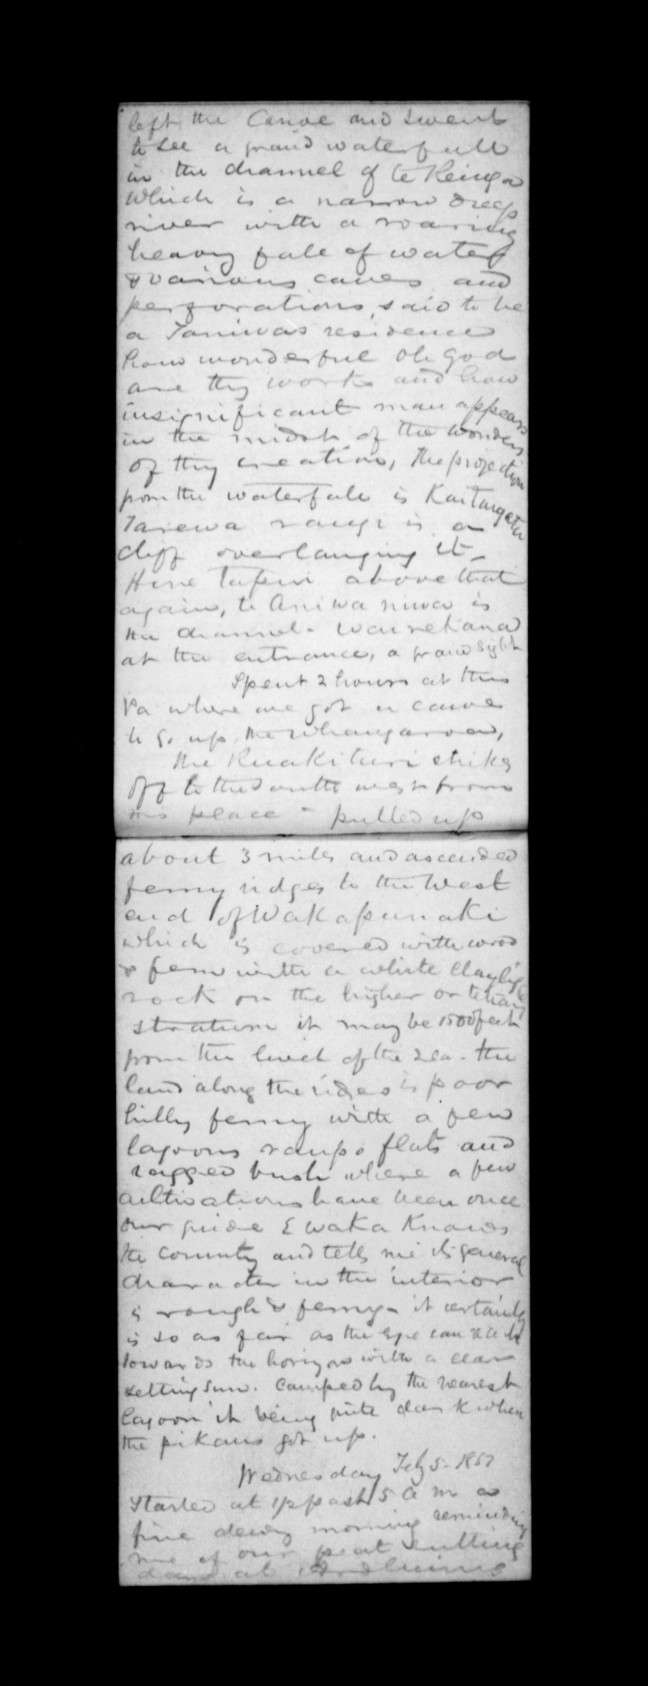 left the Canoe and I went
to see a grand waterfall
in the channel of te Reinga
which is a narrow deep
river with a roaring
heavy fall of water
& various caves and
perforations, said to be
a Taniwas residence
how wonderful Oh God
are thy works and how
insignificant man appears
in the midst of the wonders
of thy creation, the projection
from the waterfall is
Tarewa range is a
cliff overhanging it
Hine above that
again, te Aniwaniwa is
the channel. Wairehana
at the entrance, a grand sight
Spent 2 hours at this
Pa where we got a canoe
to go up the Whangaroa,
the Ruakituri strikes
off to the South west from
this place - pulled up
about 3 miles and ascended
ferny ridges to the West
end of Wakapunaki
which is covered with wood
& fern with a white clay like
rock on the higher or tertiary
stratum it may be 1500 feet
from the level of the sea - the
land along the ridges is poor
hilly ferny with a few
lagoons raupo flats and
ragged bush where a few
cultivations have been once
our guide E Waka knows
the country and tells me its general
character in the interior
is rough & ferny - it certainly
is so as far as the eye can reach
towards the horizon with a clear
setting sun. Camped by the nearest
lagoon it being quite dark when
the pikaus got up.
Wednesday Feby 5 - 1851
Started at 1/2 past 5 a m a
fine dewy morning reminding
me of our peat cutting
days at